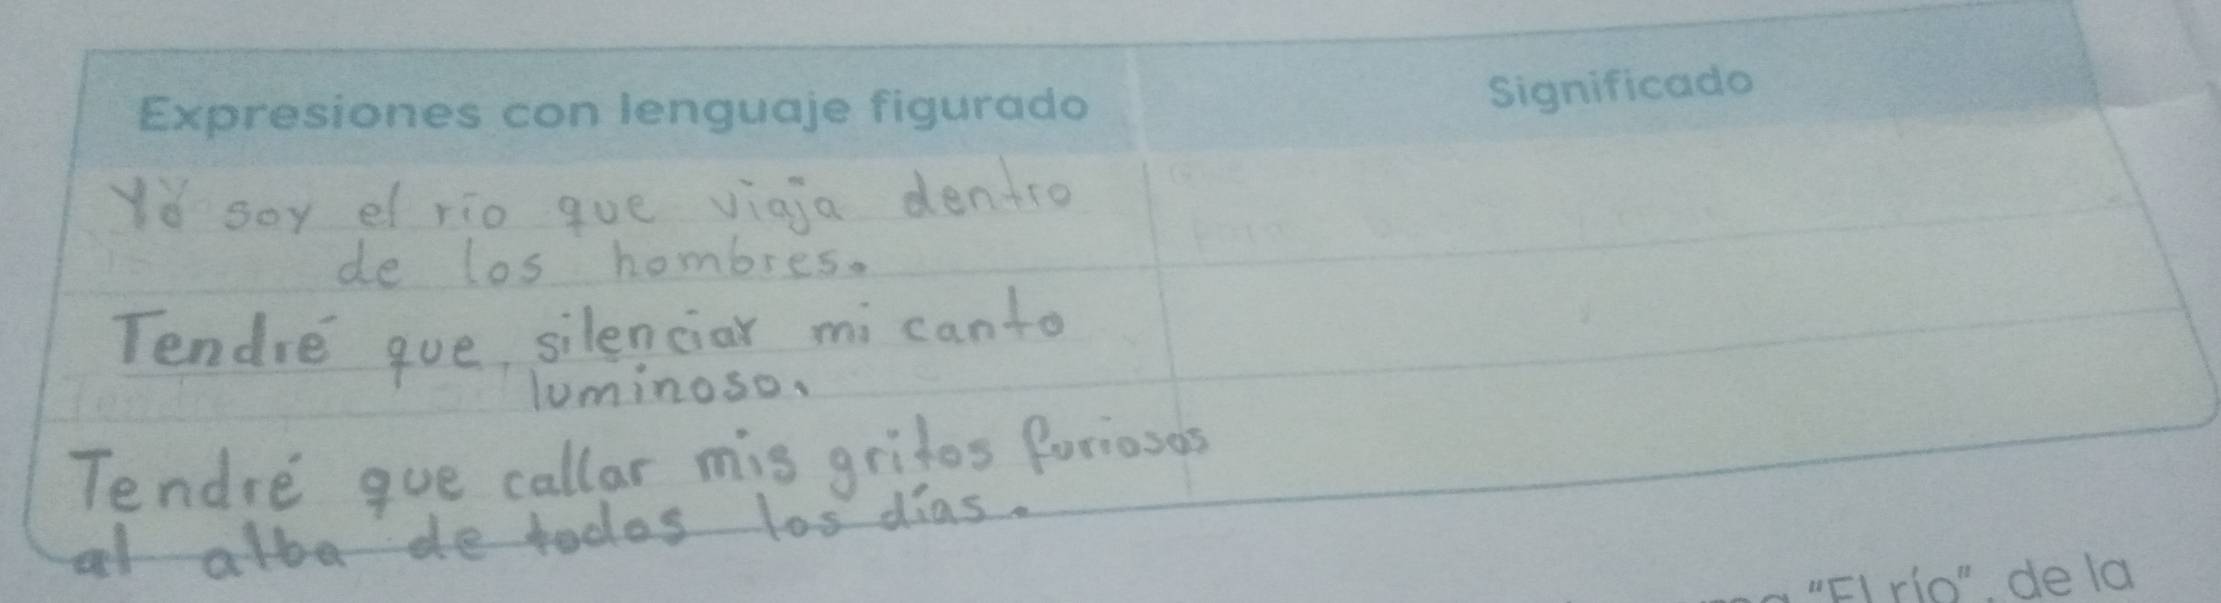 Expresiones con lenguaje figurado
Significado
Yo soy el río que viaja dentro
de los hombres.
Tendré que silenciar mi canto
luminoso.
Tendré que callar mis gritos furiosos
al alba de todos los días.
"El río", de la